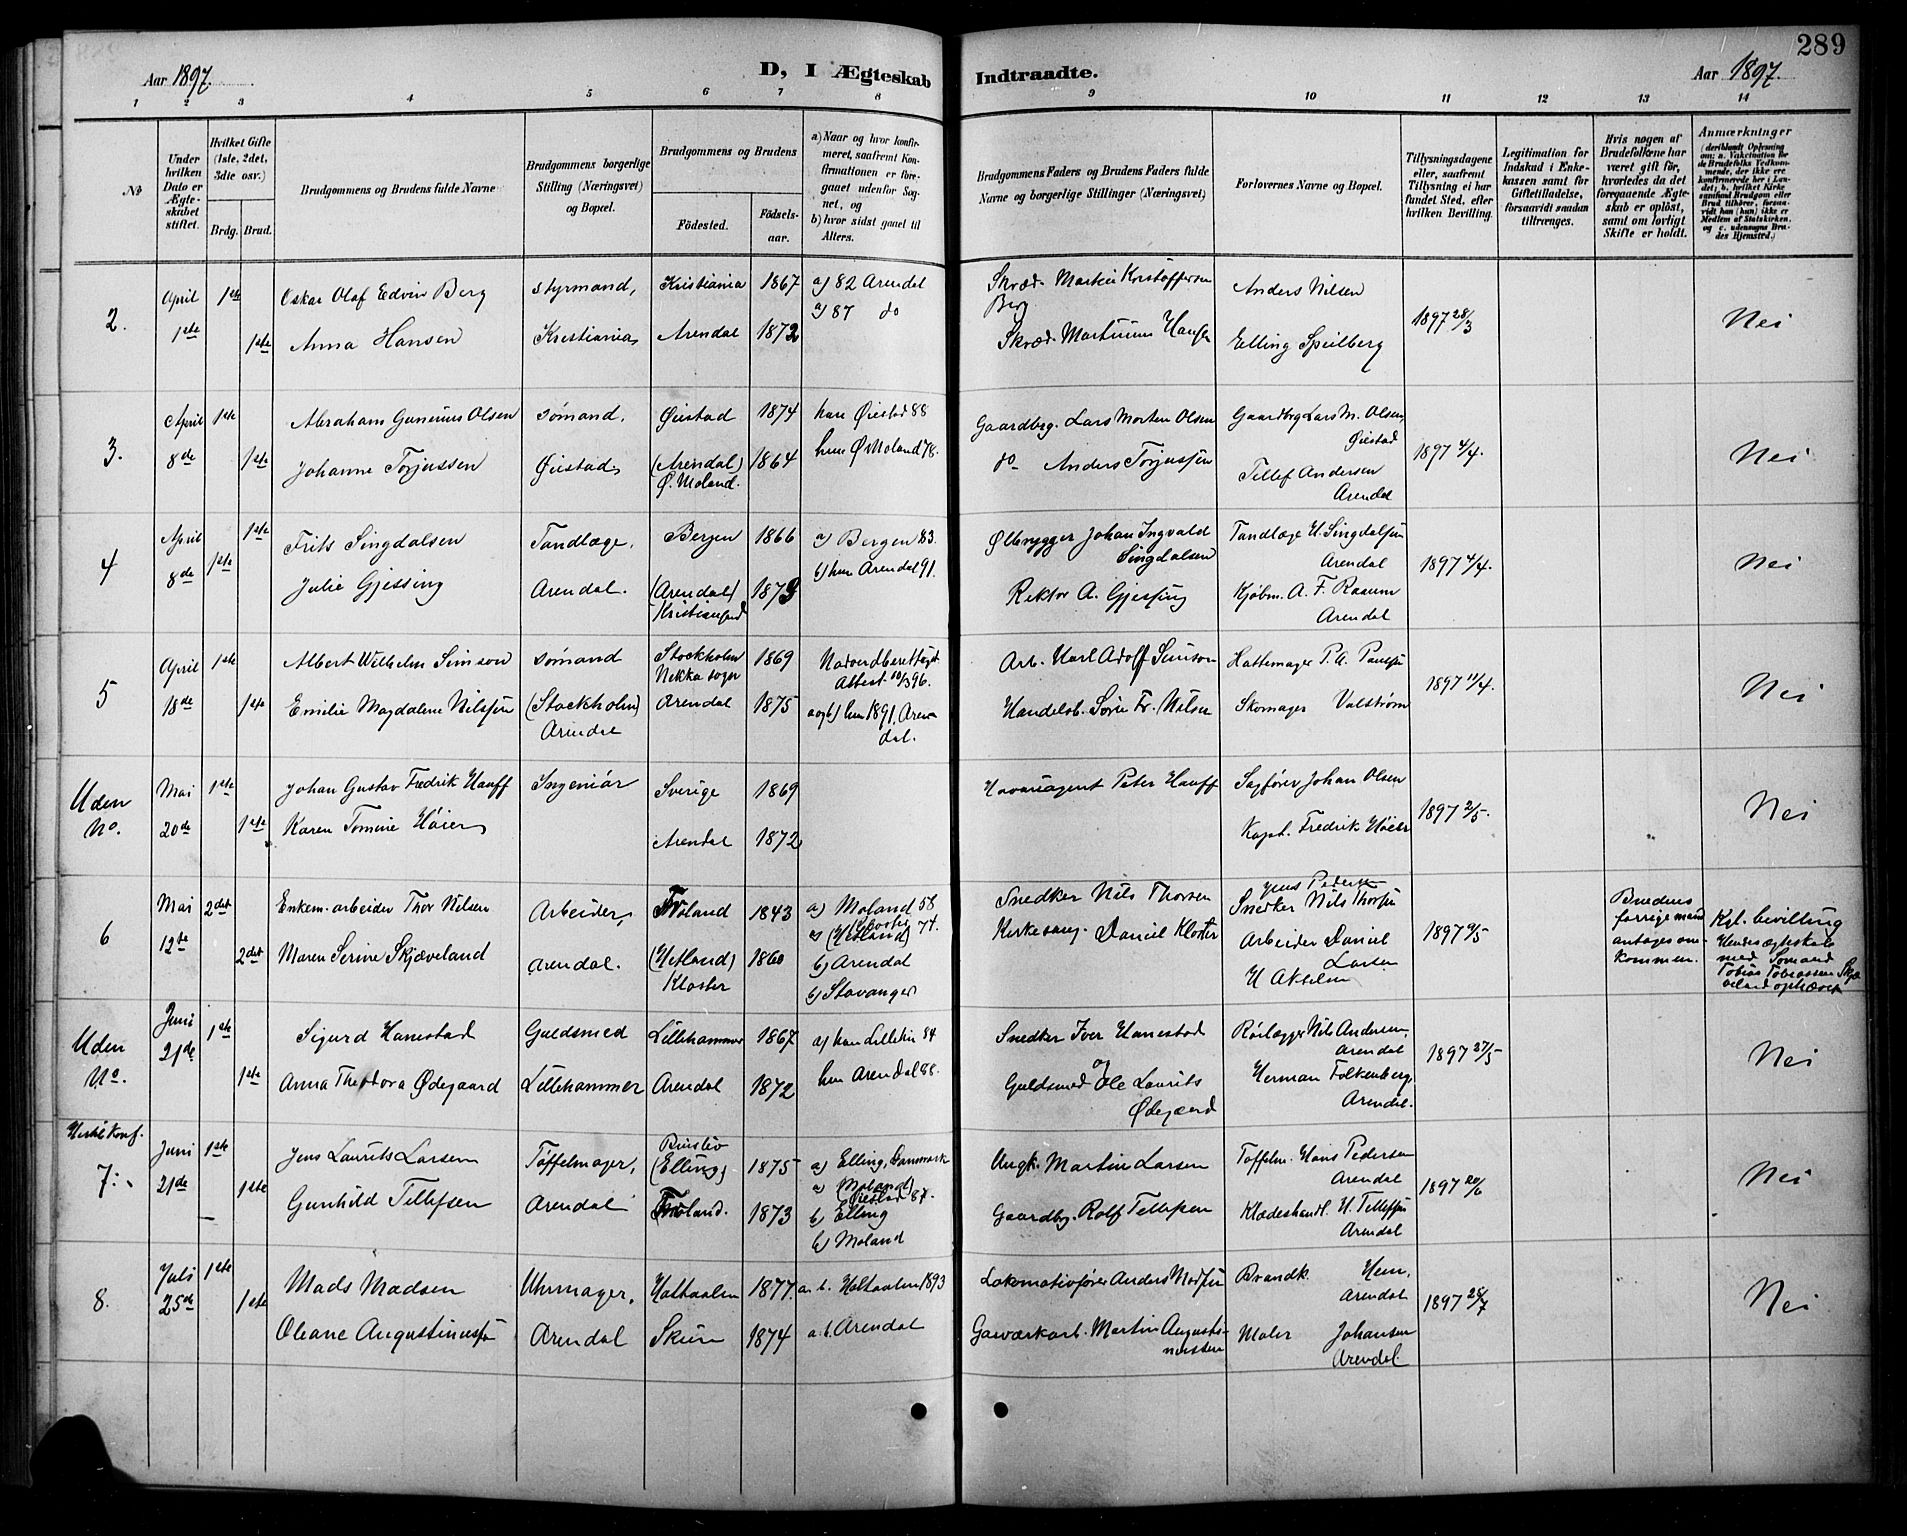 289
Aar 1897.
D, I Ægteskab
Indtraadte.
Aar 1897.
1 2 3 4 5 6 7 8 9 10 11 12 13 14
No
Under hvilken Dato er Ægteskabet stiftet.
Hvilket Gifte (1ste, 2det, 3die osv.)
Brdg. Brud.
Brudgommens og Brudens fulde Navne
Brudgommens borgerlige Stilling (Næringsvei) og Bopæl.
Brudgommens og Brudens
Fødested.
Fødselsaar.
a) Naar og hvor konfirmeret, saafremt Konfirmationen er foregaaet udenfor Sognet, og
b) hvor sidst gaaet til Alters.
Brudgommens Faders og Brudens Faders fulde Navne og borgerlige Stillinger (Næringsvei)
Forlovernes Navne og Bopæl.
Tillysningsdagene eller, saafremt Tillysning ei har fundet Sted, efter hvilken Bevilling.
Legitimation for Indskud i Enkekassen samt for Giftetilladelse, forsaavidt saadan tiltrænges.
Hvis nogen af Brudefolkene har været gift før, hvorledes da det foregaaende Ægteskab er opløst, samt om lovligt Skifte er holdt.
Anmærkninger (deriblandt Oplysning om: a. Vakcination for de Brudefolks Vedkommende, der ikke ere konfirmerede her i Landet; b. hvilket Kirkesamfund Brudgom eller Brud tilhører, forsaavidt han (hun) ikke er Medlem af Statskirken, og c. udensogns Brudes Hjemsted.)
2.
April 1ste
1ste
1ste
Oskar Olaf Edvin Berg
Anna Hansen
Styrmand,
Kristiania
Kristiania 1867
Arendal 1872
a) 82 Arendal
a) 87 do
Skræd. Martin Kristoffersen Berg
Skræd. Hansen
Anders Nilsen
Elling Speilberg
1897 28/3
Nei
3.
April 8de
1ste
1ste
Abraham Gunerius Olsen
Johanne Torjussen
Sømand,
Øiestad
Øiestad 1874
(Arendal) Ø. Moland. 1864
han Øiestad 88
hun Ø Moland 78.
Gaardbrg. Lars Morten Olsen
do- Anders Torjussen
Gaardbrg Lars M. Olsen, Øiestad
Tellef Andersen Arendal
1897 4/4
Nei
4
April 8de
1ste
1ste
Frits Singdalsen
Julie Gjessing
Tandlæge,
Arendal.
Bergen 1866
(Arendal) Kristiansand 1873
a) Bergen 83.
b) hun Arendal 91.
Ølbrygger Johan Ingvald Singdalsen
Rektor A. Gjessing
Tandlæge H. Singdalsen Arendal
Kjøbm. A. F. Arendal
1897 4/4.
Nei
5
April 18de
1ste
1ste
Albert Wilhelm Simson
Emilie Magdalene Nilssen
Sømand
(Stockholm) Arendal
Stockholm Nekka sogn 1869
Arendal 1875
Nadverdberettiget Attest 10/3 96.
a og b) hun 1891, Arendal.
Arb. Karl Adolf Simson
Handelsb. Fr. Nilsen
Hattemager P. A.
Skomager Valstrøm
1897 11/4.
Nei
Uden No.
Mai 20de
1ste
1ste
Johan Gustav Fredrik Hauff
Karen Tomine Høier
Ingeniør
Sverige 1869
Arendal 1872
Havariagent Peter Hauff
Sagfører Johan Olsen
Kapt. Fredrik Høier
1897 2/5.
Nei
6
Mai 12te
2det
2det
Enkem. arbeider Thor Nilsen
Maren Serine Skjæveland
Arbeider,
Arendal.
Froland 1843
(Hetland) Kloster 1860
a) Moland 58
a) (Hetland) Kloster 74.
b) Arendal
b) Stavanger
Snedker Nils Thorsen
Kirkesang. Daniel Kloster
Jens Pedersen
Snedker Nils Thorsen
Arbeider Daniel Larsen
H Akselsen
1897 9/5
Brudens forrige mand antages omkommen.
Kgl. bevilling
Hendes ægteskab med Sømand Tobias Tobiassen Skjæveland ophævet
Uden No.
Juni 21de
1ste
1ste
Sigurd Hanestad
Anna Theodora Ødegaard
Guldsmed
Lillehammer
Lillehammer 1867
Arendal 1872
a) han Lilleh. 84
hun Arendal 88.
Snedker Iver Hanestad
og
Guldsmed Ole Laurits Ødegaard
Rørlægger Nils Andersen, Arendal
Herman Falkenberg, Arendal.
1897 27/5
Nei
7.
Juni 21de
1ste
1ste
Jens Laurits Larsen
Gunhild Tellefsen
Tøffelmager,
Arendal
(Elling) 1875
Froland. 1873
a) Elling, Danmark
a) (Moland) Øiestad 87.
b) Elling
b) Moland
Ungk. Martin Larsen
Gaardbr. Rolf Tellefsen
Tøffelm. Hans Pedersen Arendal
Klædeshandl. H. Tellefsen Arendal
1897 20/6
Nei
8.
Juli 25de
1ste
1ste
Mads Madsen
Oleane Augustinussen
Uhrmager,
Arendal
Holtaalen 1877.
Skien 1874
a. b. Holtaalen 1893
a. b. Arendal
Lokomotivfører Anders Madsen
Gasværkarb. Martin Augustinussen
Brandk. Hem, Arendal
Maler Johansen Arendal.
1897 28/7
Nei